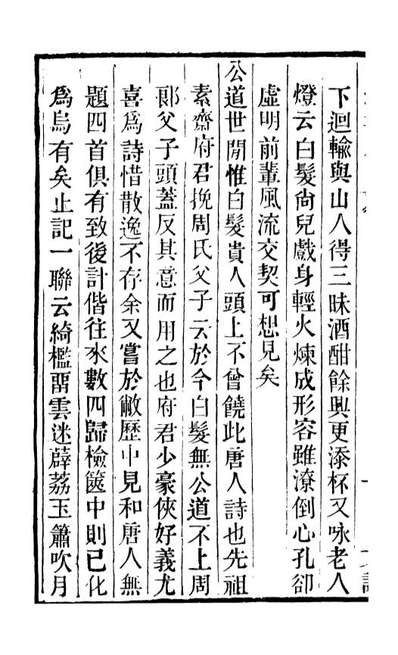 下迴輸與山人得三昧酒酣餘興更添杯又咏老人
燈云白髮尙兒戲身輕火煉成形容雖潦倒心孔卻
虛明前輩風流交契可想見矣
公道世閒惟白髮貴人頭上不曾饒此唐人詩也先祖
素齋府君挽周氏父子云於今白髮無公道不上周
郎父子頭蓋反其意而用之也府君少豪俠好義尤
喜爲詩惜散逸不存余又嘗於敝歷中見和唐人無
題四首俱有致後計偕往來數四歸檢篋中則已化
爲烏有矣止記一聯云綺檻畱雲迷薜荔玉簫吹月